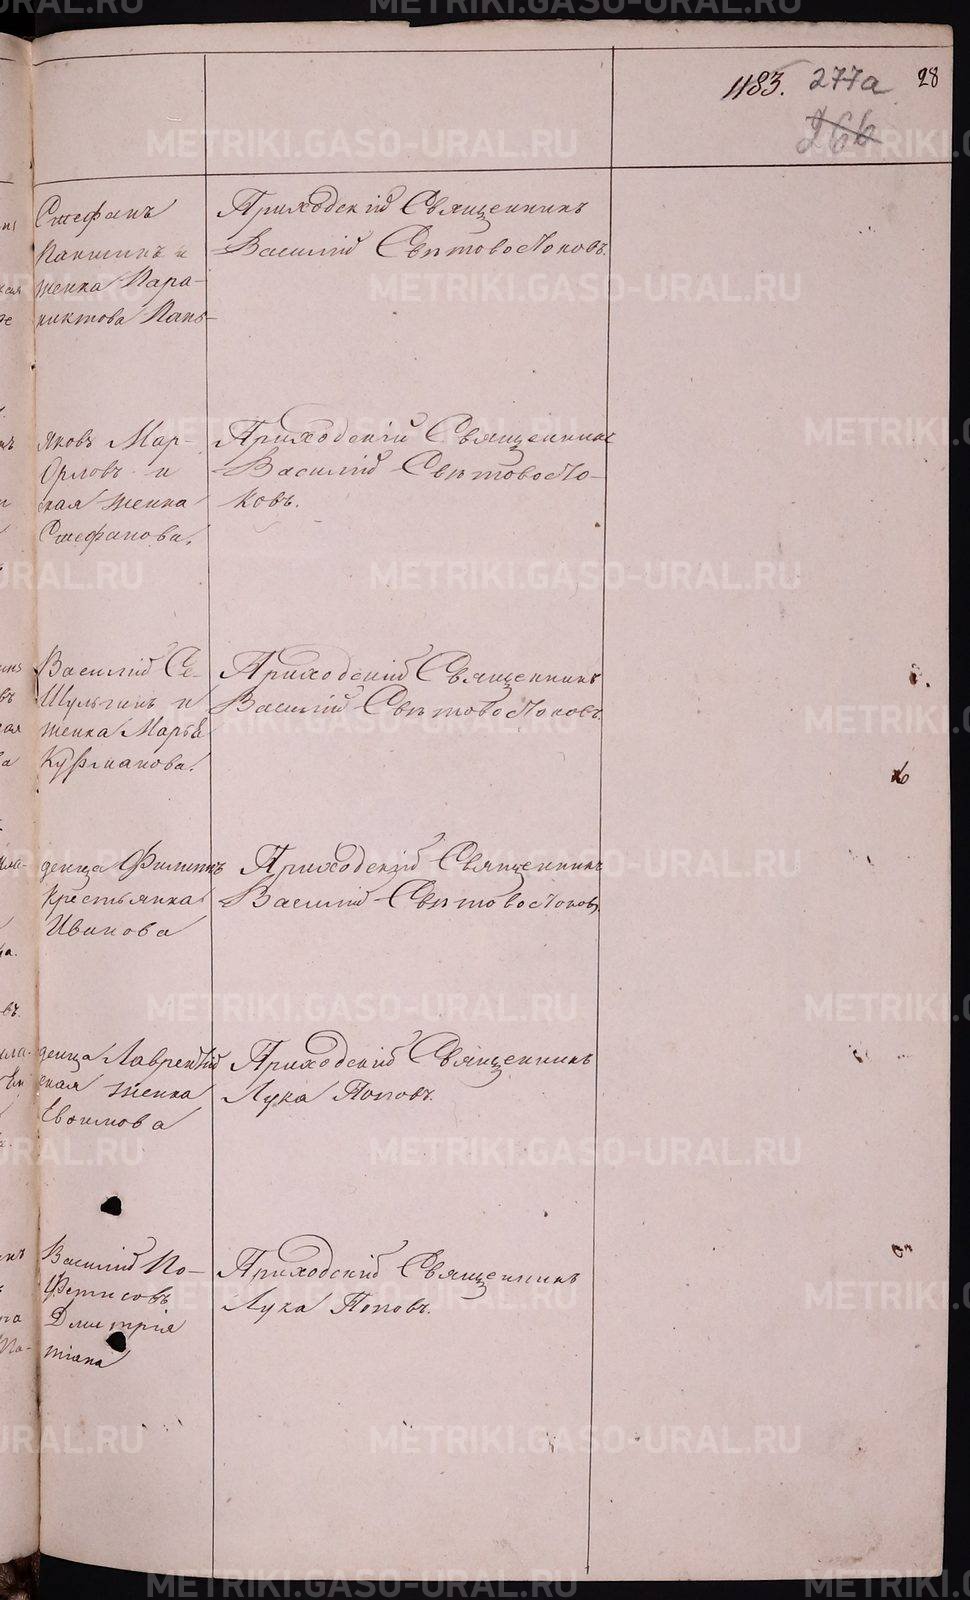 1183. 277а 28
266
Стефанъ
Паншинъ и
женка Пара-
Приходскій Священникъ
Василій Свѣтовостоковъ.
Яковъ Мар-
Орловъ и
ская женка
Стефанова.
Приходскій Священникъ
Василій Свѣтовосто-
ковъ.
Василій Се-
Шульгинъ и
женка Марья
Курманова.
Приходскій Священникъ
Василій Свѣтовостоковъ
денца Филиппъ
крестьянка
Иванова
Приходскій Священникъ
Василій Свѣтовостоковъ
денца Лаврентій
ская женка
Евоимова
Приходскій Священникъ
Лука Поповъ.
Василій По-
Фетисовъ
Дмитрія
тіана
Приходскій Священникъ
Лука Поповъ.
METRIKI.GASO-URAL.RU